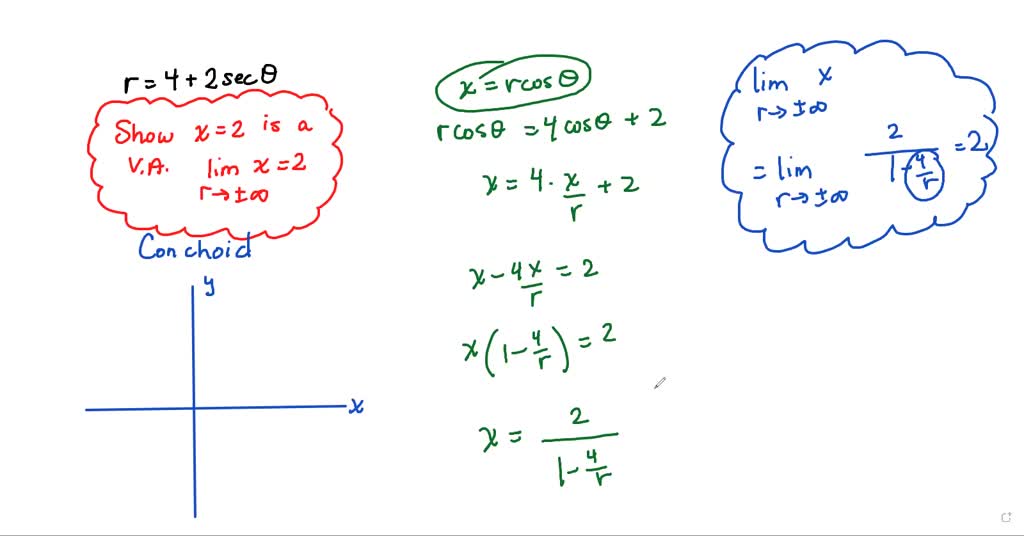 r = 4 + 2 sec θ
Show x = 2 is a
V.A. lim x = 2
r → ±∞
Conchoid
y
x
x = r cos θ
r cos θ = 4 cos θ + 2
x = 4 · x/r + 2
x - 4x/r = 2
x (1 - 4/r) = 2
x = 2/(1 - 4/r)
lim x
r → ±∞
= lim 2/(1 - 4/r) = 2
r → ±∞